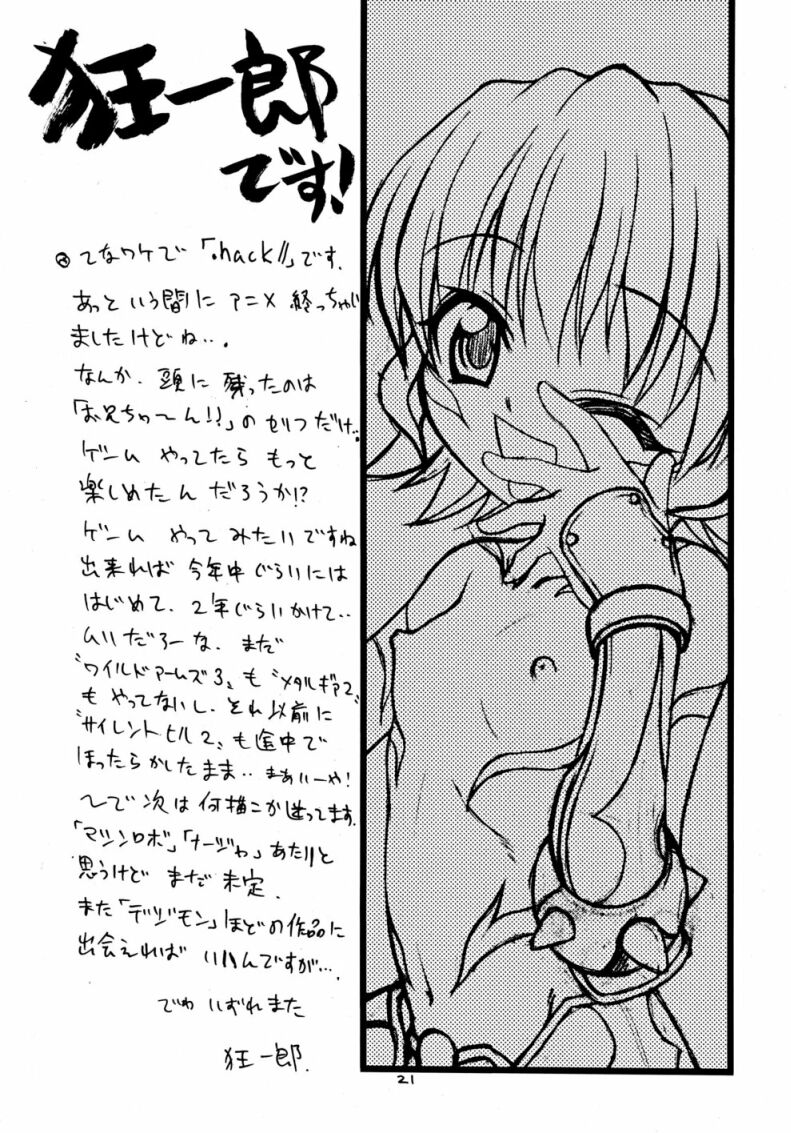 狂一郎
です!
てなワケで「.hack//」です.
あっという間に アニメ 終っちゃい
ましたけどね….
なんか. 頭に 残ったのは
「お兄ちゃ〜ん!!」の セリフ だけ。
ゲーム やってたら もっと
楽しめたん だろうか!?
ゲーム やって みたいですね
出来れば 今年中 ぐらいには
はじめて. 2年ぐらいかけて‥
ムリだろーな. まだ
〝ワイルドアームズ3〟も〝メタルギア2〟
も やってないし. それ以前に
〝サイレントヒル2〟も途中で
ほったらかしたまま‥ まぁいーや!
〜で 次は 何描こか迷ってます.
「マシンロボ」「ナージャ」あたりと
思うけど まだ 未定.
また「デジモン」ほどの作品に
出会えれば いいんですが….
でわ いずれまた
狂一郎.
21